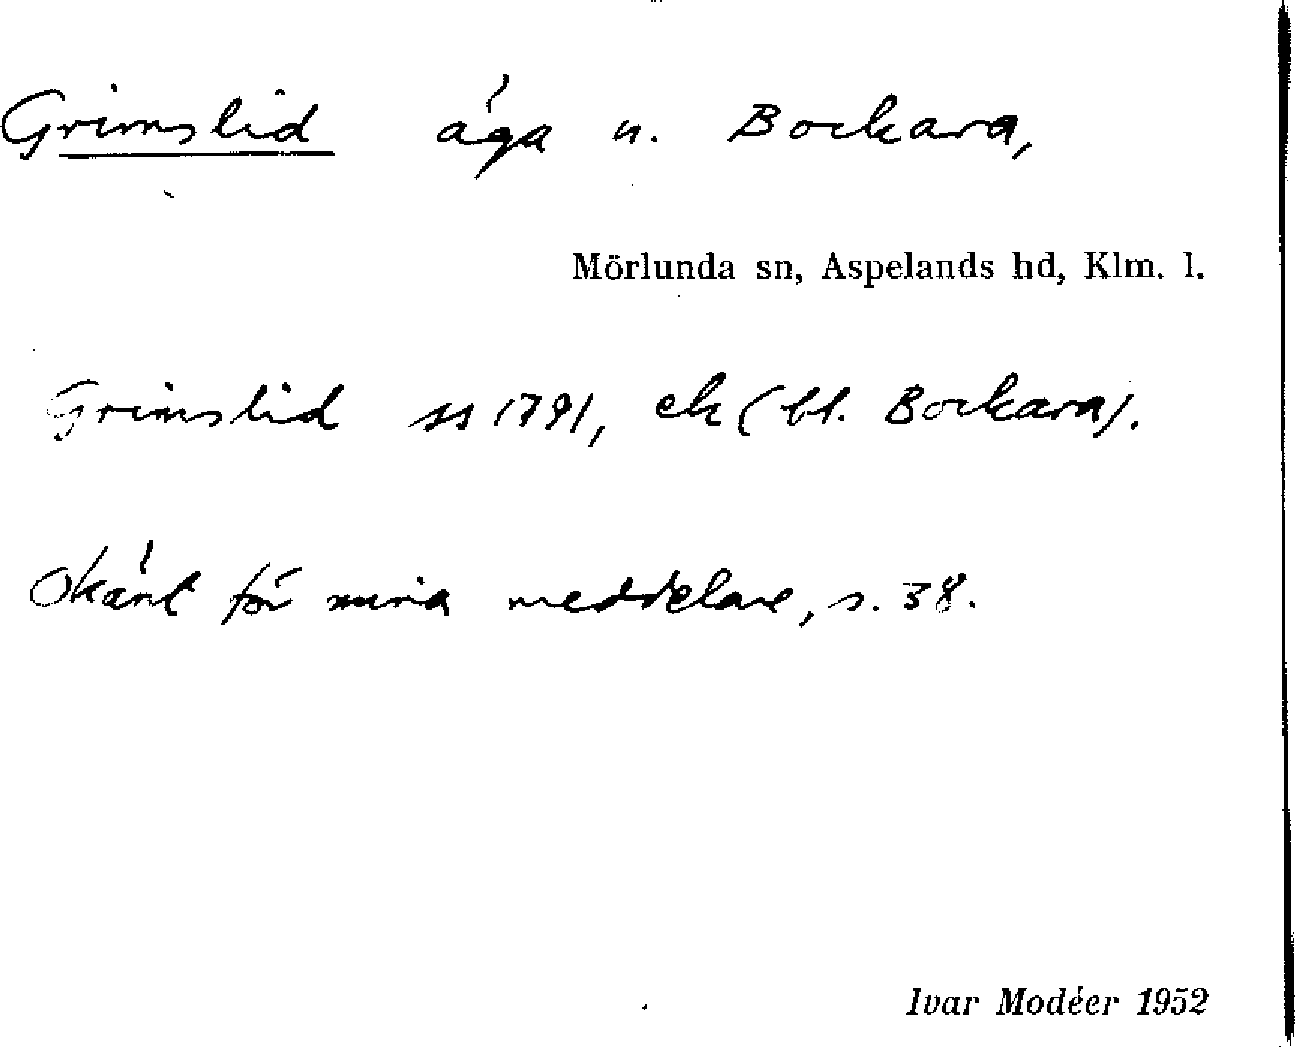 Grimslid äga u. Bockara,
Mörlunda sn, Aspelands hd, Klm. l.
Grimslid ss 1791, ek (bl. Bockara).
Okänt för mina meddelare, s. 38.
Ivar Modéer 1952